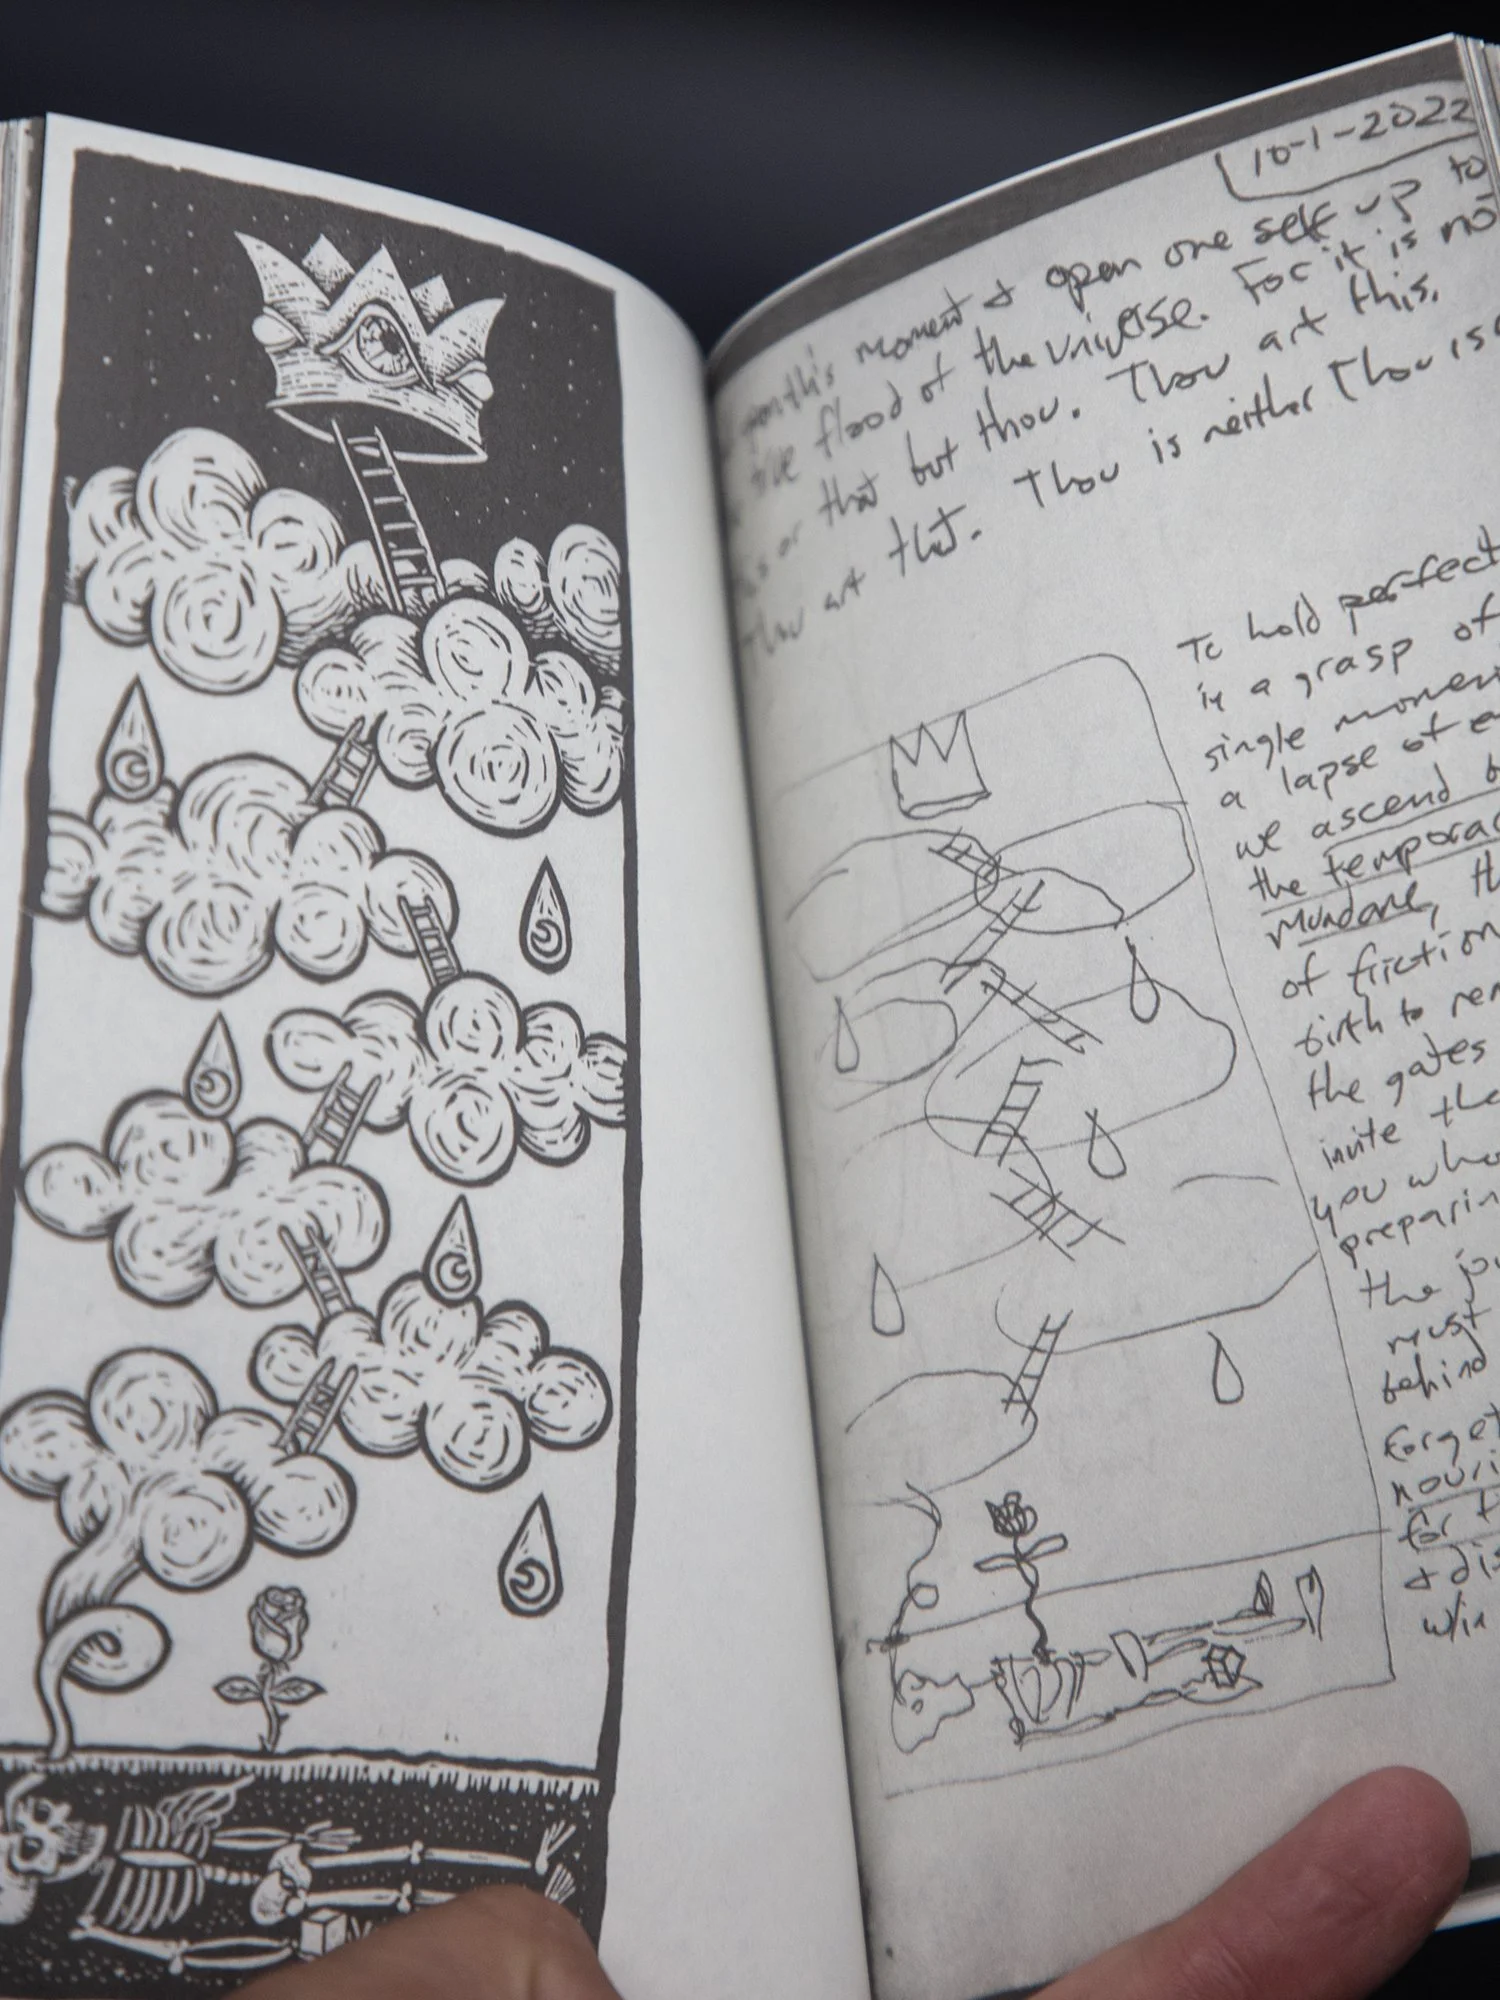 10-1-2022
moment & open one self up to
flood of the universe. For it is no
or that but thou. Thou art this.
Thou art that. Thou is neither Thou is
To hold perfect
in a grasp of
single momen
a lapse of e
we ascend b
the temporar
mundane, th
of friction
birth to ren
the gates
invite the
you whe
preparin
the jou
must
behind
forget
nouri
for t
& dis
w/in